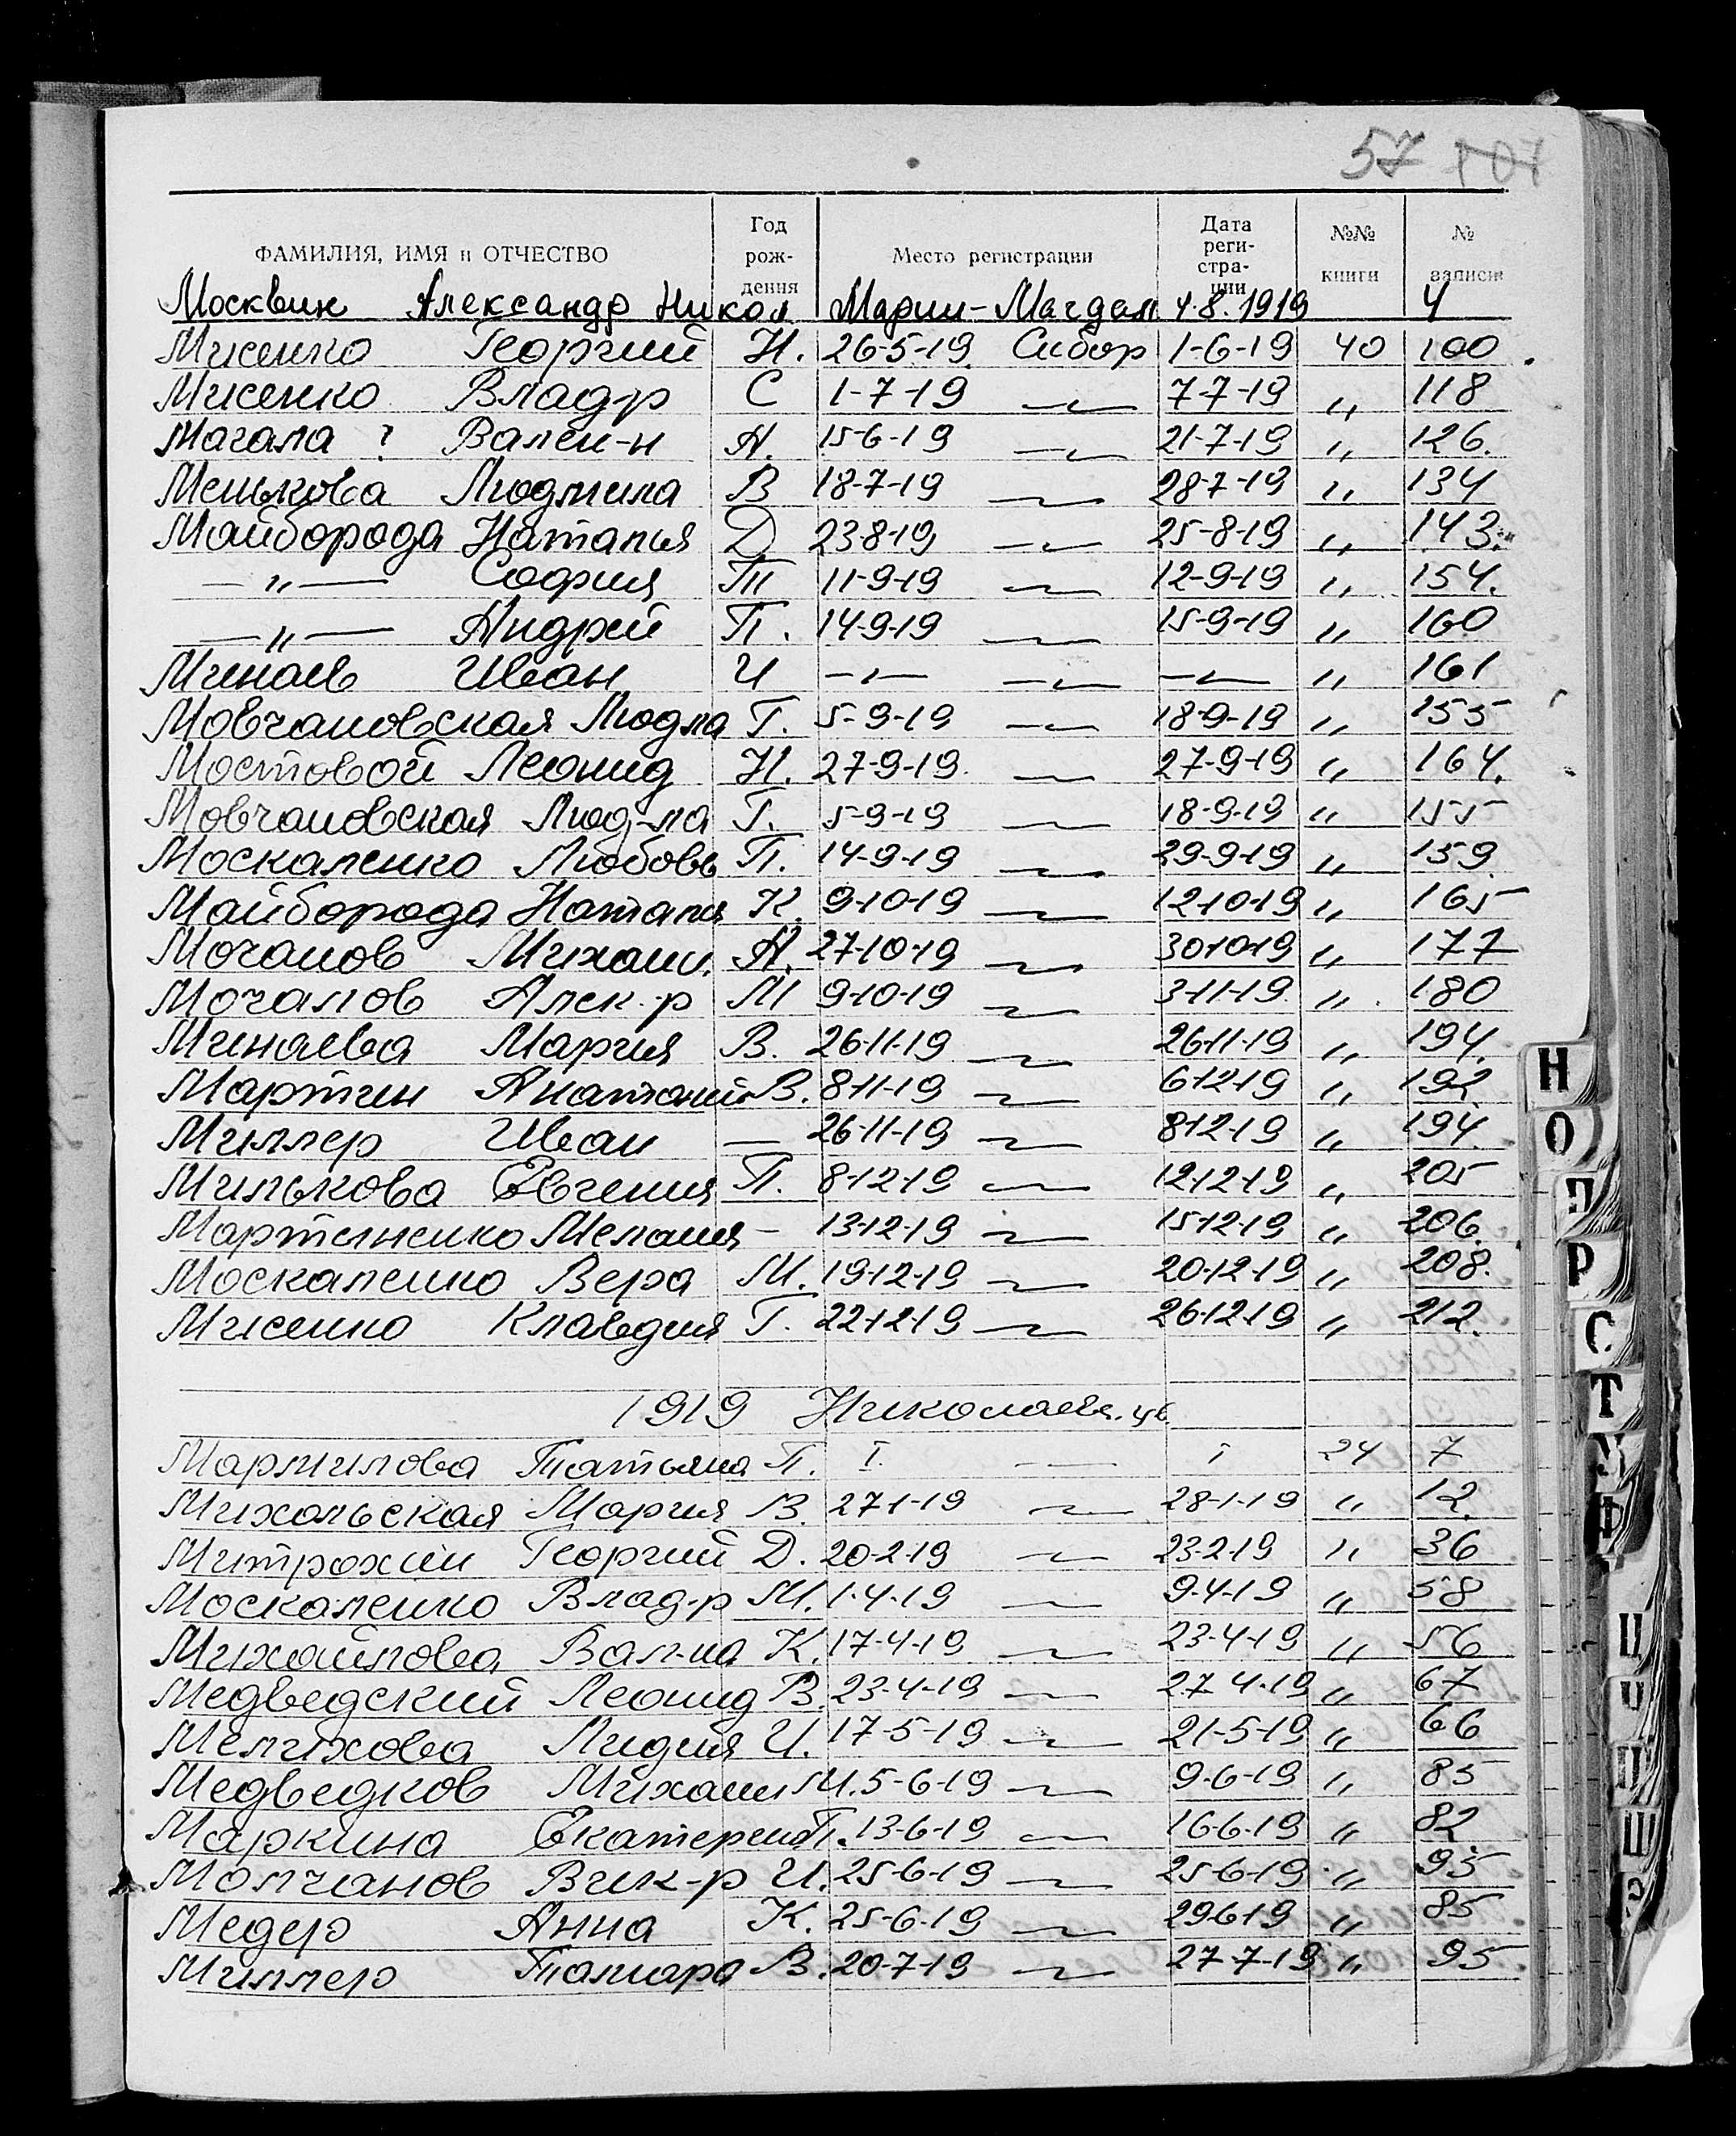 57 107
ФАМИЛИЯ, ИМЯ и ОТЧЕСТВО Год рождения Место регистрации Дата регистрации №№ книги № записи
Москвин Александр Никол Марии-Магдал 4.8.1919 4
Мисенко Георгий Н. 26-5-19 Сибор 1-6-19 40 100
Мисенко Влад-р С 1-7-19 —〃— 7-7-19 〃 118
Магала ? Вален-н А. 15-6-19 —〃— 21-7-19 〃 126.
Менькова Людмила В 18-7-19 —〃— 28-7-19 〃 134
Майборода Наталья Д 23-8-19 —〃— 25-8-19 〃 143.
—〃— София Т 11-9-19 —〃— 12-9-19 〃 154.
—〃— Андрей П. 14-9-19 —〃— 15-9-19 〃 160
Минаев Иван И —〃— —〃— —〃— 〃 161
Мовчановская Людла Г. 5-9-19 —〃— 18-9-19 〃 155
Мостовой Леонид Н. 27-9-19 —〃— 27-9-19 〃 164.
Мовчановская Люд-ла Г. 5-9-19 —〃— 18-9-19 〃 155
Москаленко Любовь П. 14-9-19 —〃— 29-9-19 〃 159.
Майборода Наталия К. 9-10-19 —〃— 12-10-19 〃 165
Мочанов Михаил. А. 27-10-19 —〃— 30-10-19 〃 177
Мочалов Алек-р М 9-10-19 —〃— 3-11-19 〃 180
Минаева Мария В. 26-11-19 —〃— 26-11-19 〃 194.
Мартин Анатолий В. 8-11-19 —〃— 6-12-19 〃 192
Миллер Иван — 26-11-19 —〃— 8-12-19 〃 194.
Милькова Евгения П. 8-12-19 —〃— 12-12-19 〃 205
Мартиненко Мелания - 13-12-19 —〃— 15-12-19 〃 206.
Москаленко Вера М. 19-12-19 —〃— 20-12-19 〃 208.
Мисенко Клавдия Г. 22-12-19 —〃— 26-12-19 〃 212.
1919 Николаевс. цв.
Мармилова Татьяна П. I — I 24 7
Михальская Мария В. 27-1-19 —〃— 28-1-19 〃 12.
Митрохин Георгий Д. 20-2-19 —〃— 23-2-19 〃 36
Москаленко Влад-р М. 1-4-19 —〃— 9-4-19 〃 58
Михайлова Вал-на К. 17-4-19 —〃— 23-4-19 〃 56
Медведский Леонид В. 23-4-19 —〃— 27-4-19 〃 67
Мелихова Лидия И. 17-5-19 —〃— 21-5-19 〃 66
Медведков Михаил М. 5-6-19 —〃— 9-6-19 〃 85
Маркина Екатерина П. 13-6-19 —〃— 16-6-19 〃 82
Молчанов Вик-р И. 25-6-19 —〃— 25-6-19 〃 95
Медер Анна К. 25-6-19 —〃— 29-6-19 〃 85
Миллер Тамара В. 20-7-19 —〃— 27-7-19 〃 95
Н
О
П
Р
С
Т
У
Ф
Ц
Ч
Ш